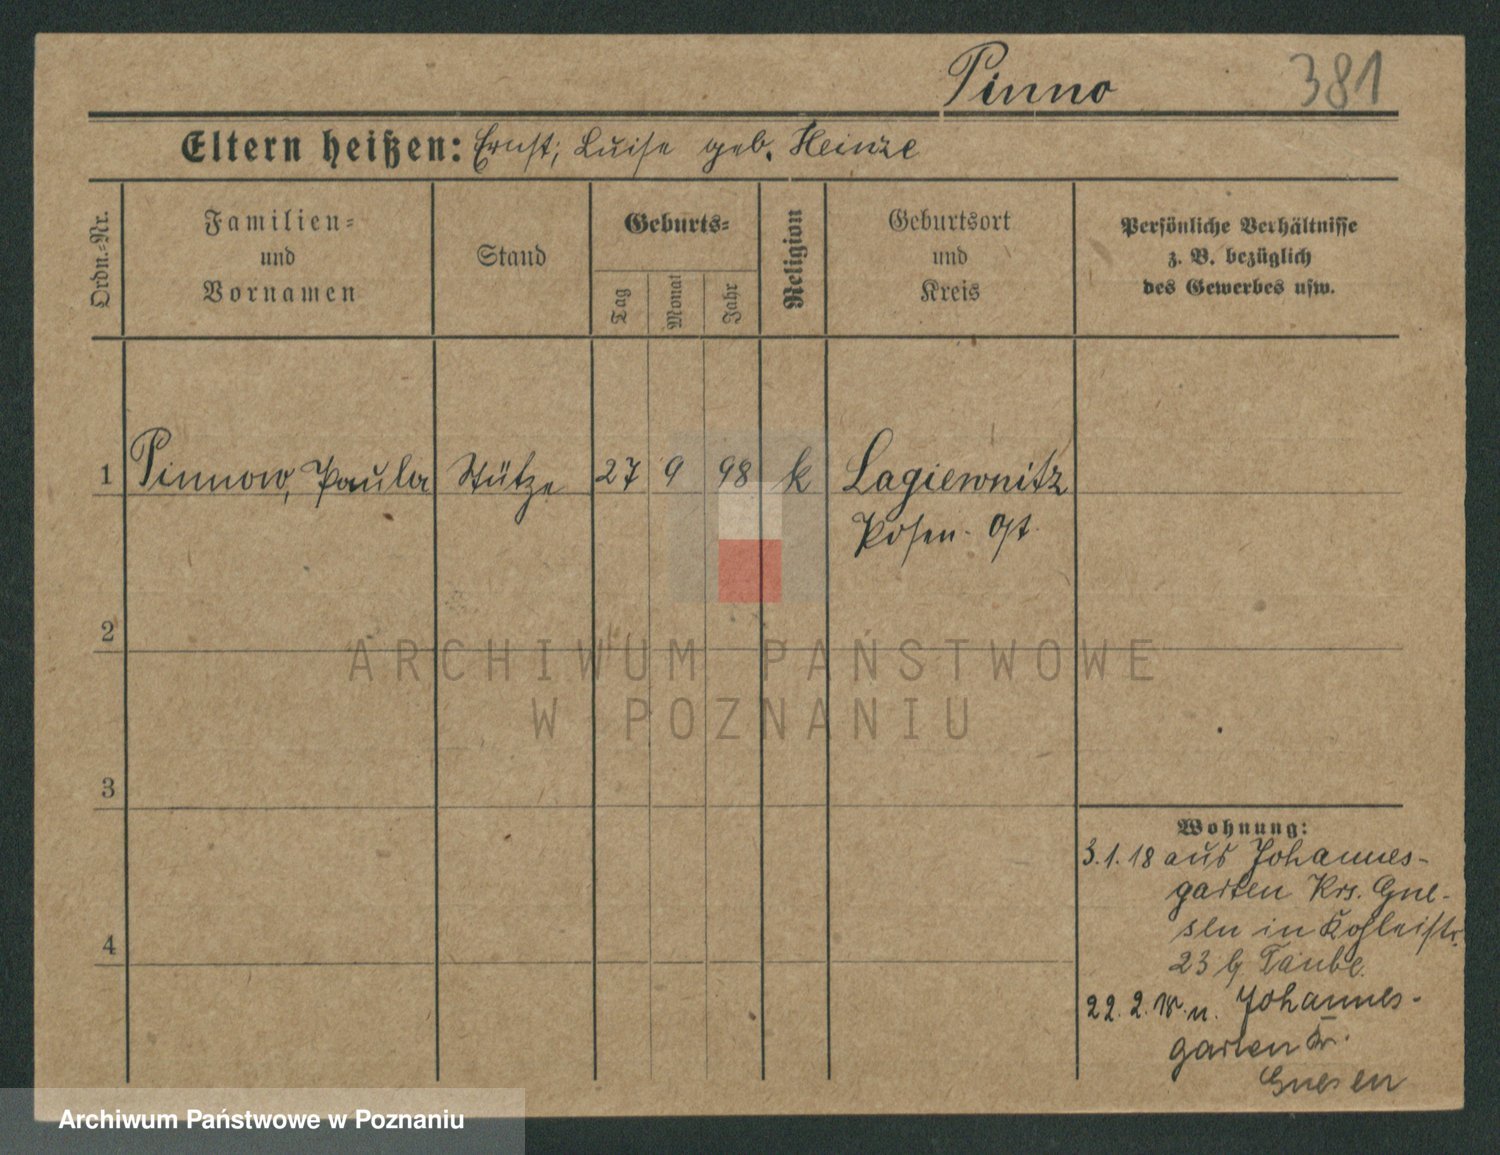 Pinno 381
Eltern heißen: Ernst, Luise geb. Heinze
Ordn.-Nr.
Familien-
und
Vornamen
Stand
Geburts-
Tag
Monat
Jahr
Religion
Geburtsort
und
Kreis
Persönliche Verhältnisse
z. B. bezüglich
des Gewerbes usw.
1 Pinnow, Paula Stütze 27 9 98 k Lagiewnitz
Posen-Ost
2
ARCHIWUM PAŃSTWOWE
W POZNANIU
3
Wohnung:
3.1.18 aus Johannes-
garten Krs. Gne-
sen in
4
23 Taube
22.2.18 n. Johannes-
garten Kr.
Gnesen
Archiwum Państwowe w Poznaniu